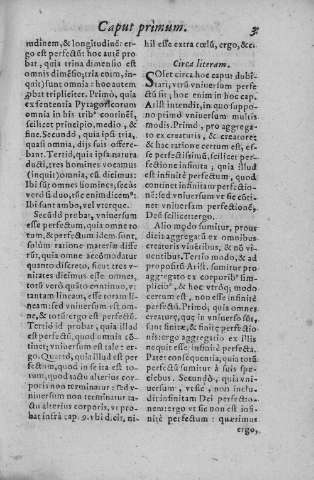 Caput primum. 3
tudinem, & longitudinē: er-
go est perfectū: hoc autē pro
bat, quia trina dimensio est
omnis dimēsio, tria enim, in-
quit) sunt omnia: hoc autem
ꝓbat tripliciter. Primò, quia
ex sententia Pytagoricorum
omnia in his tribus cōtineri,
scilicet principio, medio, &
fine. Secundò, quia ipsū tria,
quasi omnia, dijs suis offere-
bant. Tertiò, quia ipsa natura
ducti, tres homines vocamus
(inquit) omnia, cùm dicimus:
Ibi sūt omnes homines, secùs
verò si duo, sic enim dicemus:
Ibi sunt ambo, vel vterque.
Secūdò probat, vniuersum
esse perfectum, quia omne to
tum, & perfectum idem sunt,
solùm ratione materiæ diffe
rūt, quia omne accōmodatur
quanto discreto, sicut tres v-
nitates diximus esse omnes,
totū verò quāto continuo, v-
tantam lineam, esse totam li-
neam: sed vniuersum est om-
ne, & totū: ergo est perfectū
Tertiò id probat, quia illud
est perfectū, quod omnia cō-
tinet; vniuersum est tale: er-
go. Quartò, quia illud est per
fectum, quod in se ita est to-
tum, quod tactu alterius cor-
poris non terminatur: sed v-
niuersum non terminatur ta-
ctu alterius corporis, vt pro-
bat infrà cap. 9. vbi dicit, ni-
hil esse extra cœlū, ergo, &c.
Circa literam.
SOlet circa hoc caput dubi-
tari, verùm vniuersum perfe
ctū sit, hoc enim in hoc cap.
Arist. intendit, in quo suppo-
no primò vniuersum multis
modis. Primò, pro aggrega-
to ex creaturis, & creatore:
& hac ratione certum est, es-
se perfectissimū, scilicet per-
fectione infinita; quia illud
est infinitè perfectum, quod
continet infinitam perfectio-
nē: sed vniuersum vt sic cōti-
ner vniuersam perfectionē,
Deū scilicet: ergo.
Alio modo sumitur, prout
dicit aggregatū ex omnibus
creaturis viuētibus, & nō vi-
uentibus. Tertio modo, & ad
propositū Arist. sumitur pro
aggregato ex corporibus sim-
plicibus, & hoc vtroque modo
certum est, non esse infinitè
perfectū. Primò, quia omnes
creaturæ, quæ in vniuerso sūt,
sunt finitæ, & finitæ perfectio-
nis: ergo aggregatio ex illis
nequit esse infinitè perfecta.
Patet consequentia, quia totū
perfectū sumitur à suis spe-
ciebus. Secundò, quia vni-
uersum, vt sic, non inclu-
dit infinitam Dei perfectio-
nem: ergo vt sic non est infi-
nitè perfectum: quærimus
ergo,